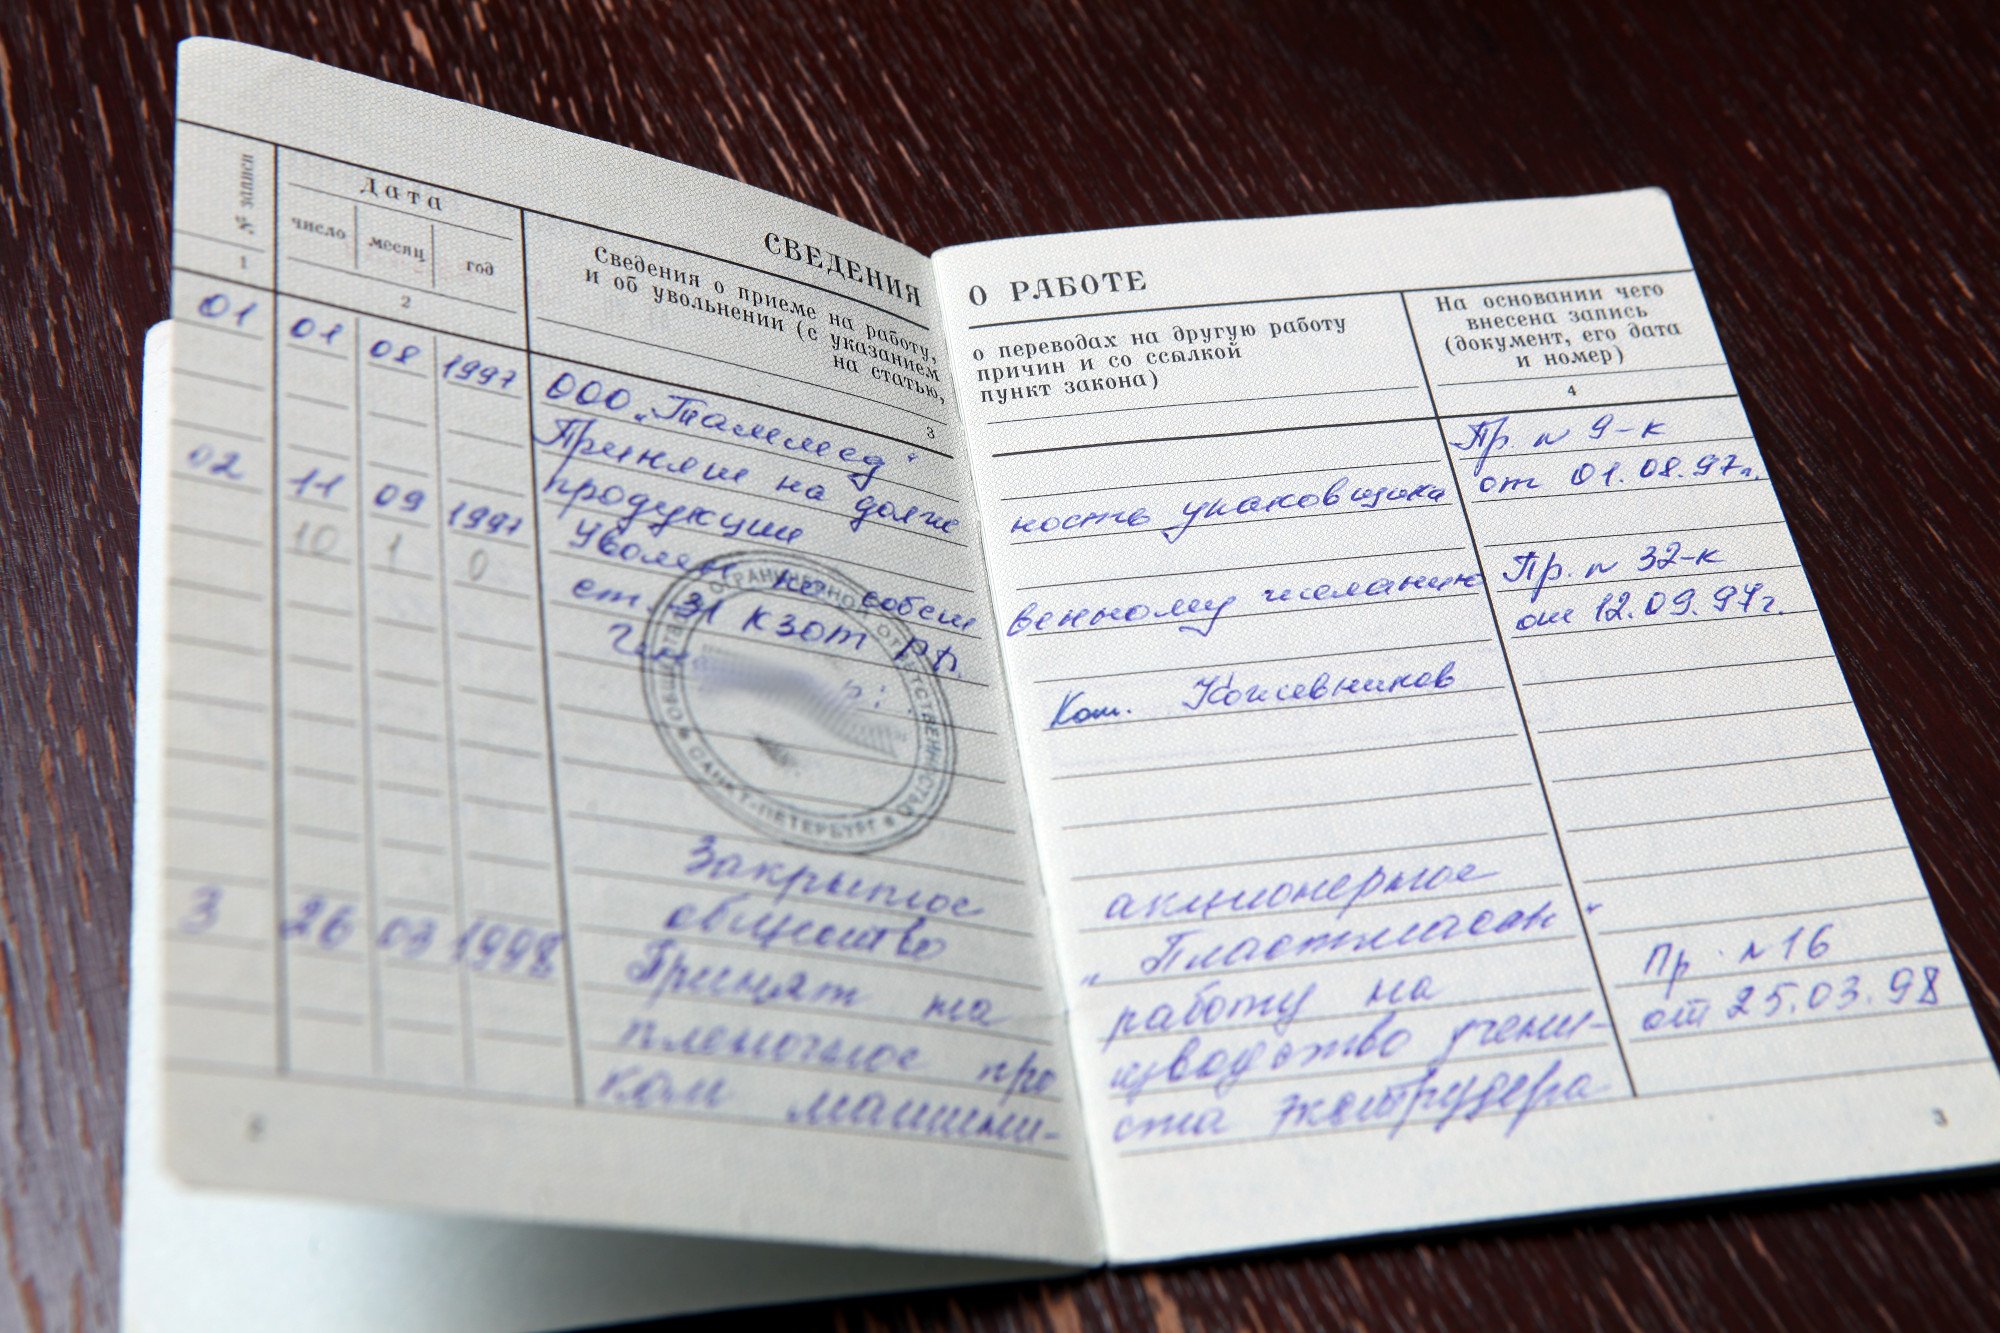 СВЕДЕНИЯ О РАБОТЕ
№ записи
Дата
число месяц год
Сведения о приеме на работу, о переводах на другую работу
и об увольнении (с указанием причин и со ссылкой
на статью, пункт закона)
На основании чего
внесена запись
(документ, его дата
и номер)
1 2 3 4
01 01 08 1997 ООО „Таммед"
Принят на должность упаковщика
продукции
Пр. № 9-к
от 01.08.97г.
02 11 09 1997 Уволен по собственному желанию
ст. 31 КЗОТ РФ.
Пр. № 32-к
от 12.09.97г.
10 1 0
Ген.
Кожевников
ОГРАНИЧЕННОЙ ОТВЕТСТВЕННОСТЬЮ
САНКТ-ПЕТЕРБУРГ
Закрытое акционерное
общество „Пластмассы"
3 26 03 1998 Принят на работу на
пленочное производство учени-
ком машиниста экструдера
Пр. № 16
от 25.03.98
3